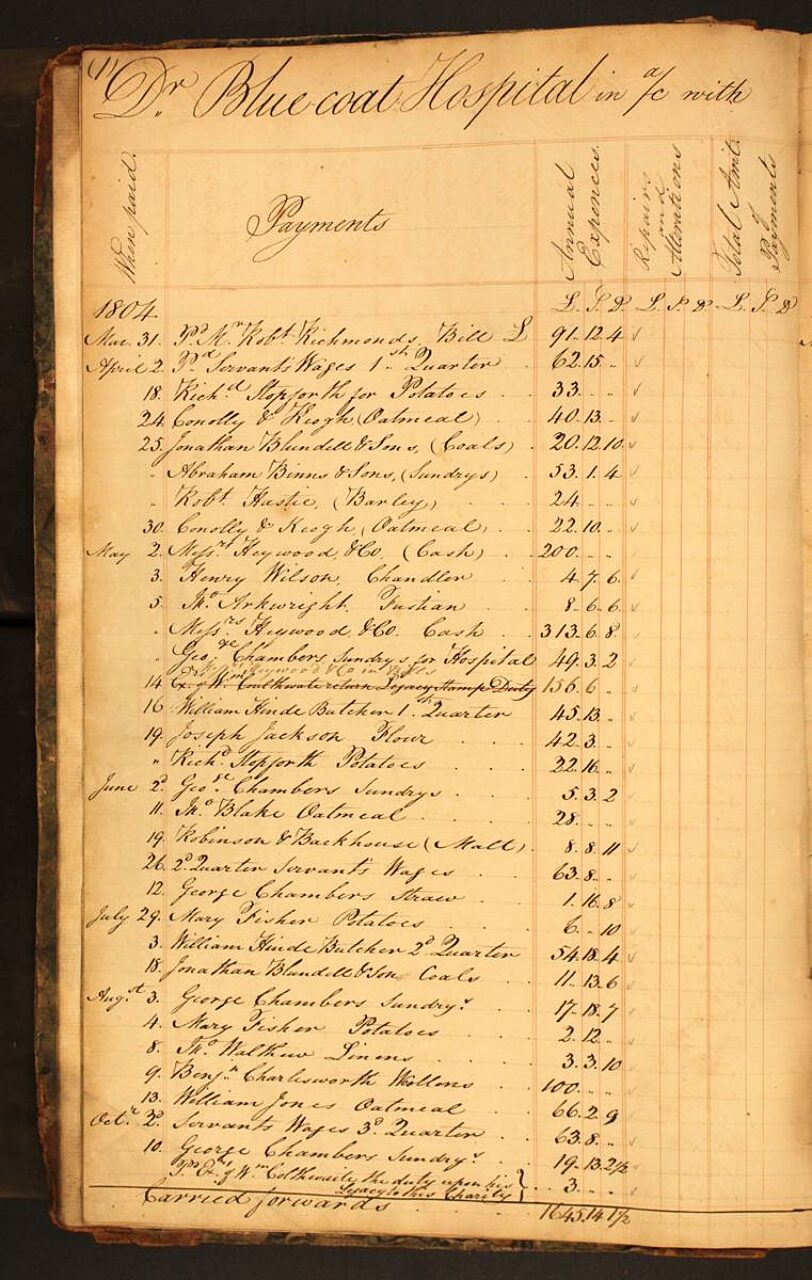 (1)
Dr Blue coat Hospital in a/c with
When paid.
Payments
Annual Expences.
Repairs and Alterations
Total Amt. of Payments
1804 L. S. D. L. S. D. L. S. D
Mar. 31. Pd. Mr. Robt. Richmonds Bill L 91..12..4
April 2. Pd. Servants Wages 1st. Quarter 62..15..
18. Richd. Stopforth for Potatoes 33..
24. Conolly & Keogh (Oatmeal) 40..13..
25. Jonathan Blundell & Sons, (Coals) 20..12..10
" Abraham Binns & Sons, (Sundrys) 53..1..4
" Robt. Hastie, (Barley) 24..
30. Conolly & Keogh, (Oatmeal) 22..10..
May 2. Messrs. Heywood & Co. (Cash) 200..
3. Henry Wilson, Chandler 4..7..6
5. Tho. Arkwright Fustian 8..6..6
" Messrs Heywood & Co. Cash 313..6..8
" Geoge. Chambers Sundrys for Hospital 49..3..2
Heywood & Co in
14 Ex. of Wm. Coulthwaite return Legacy Stamp Duty 156..6..
16 William Hinde Butcher 1st. Quarter 45..13..
19. Joseph Jackson Flour 42..3..
" Richd. Stopforth Potatoes 22..16..
June 2d. Geoge. Chambers Sundrys 5..3..2
11. Tho. Blake Oatmeal 28..
19. Robinson & Backhouse (Malt) 8..8..11
26. 2d. Quarter Servants Wages 63..8..
12. George Chambers Straw 1..16..8
July 29. Mary Fisher Potatoes 6.. ..10
3. William Hinde Butcher 2d. Quarter 54..18..4
18. Jonathan Blundell & Son Coals 11..13..6
Augst. 3. George Chambers Sundrys 17..18..7
4. Mary Fisher Potatoes 2..12..
8. Tho. Walthew Linens 3..3..10
9. Benjn. Charlesworth Wollens 100..
13. William Jones Oatmeal 66..2..9
Octr. 2d. Servants Wages 3d. Quarter 63..8..
10. George Chambers Sundrys 19..13..2½
Pd. Exrs. of Wm. Colthwaite the duty upon his
Legacy to this Charity 3..
Carried forwards 1645..14..1½